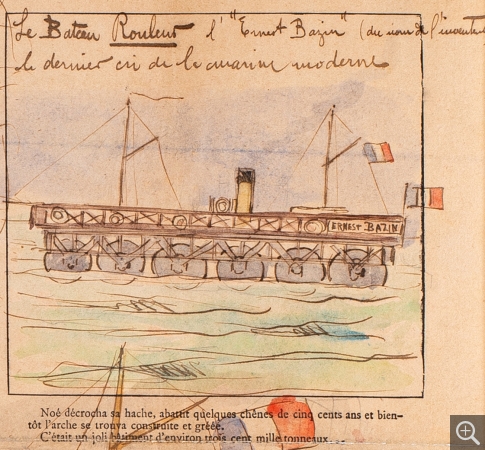 Le Bateau Rouleur l' "Ernest Bazin" (du nom de l'invente
le dernier cri de la marine moderne
ERNEST BAZIN
Noé décrocha sa hache, abattit quelques chênes de cinq cents ans et bien-
tôt l'arche se trouva construite et gréée.
C'était un joli bâtiment d'environ trois cent mille tonneaux...